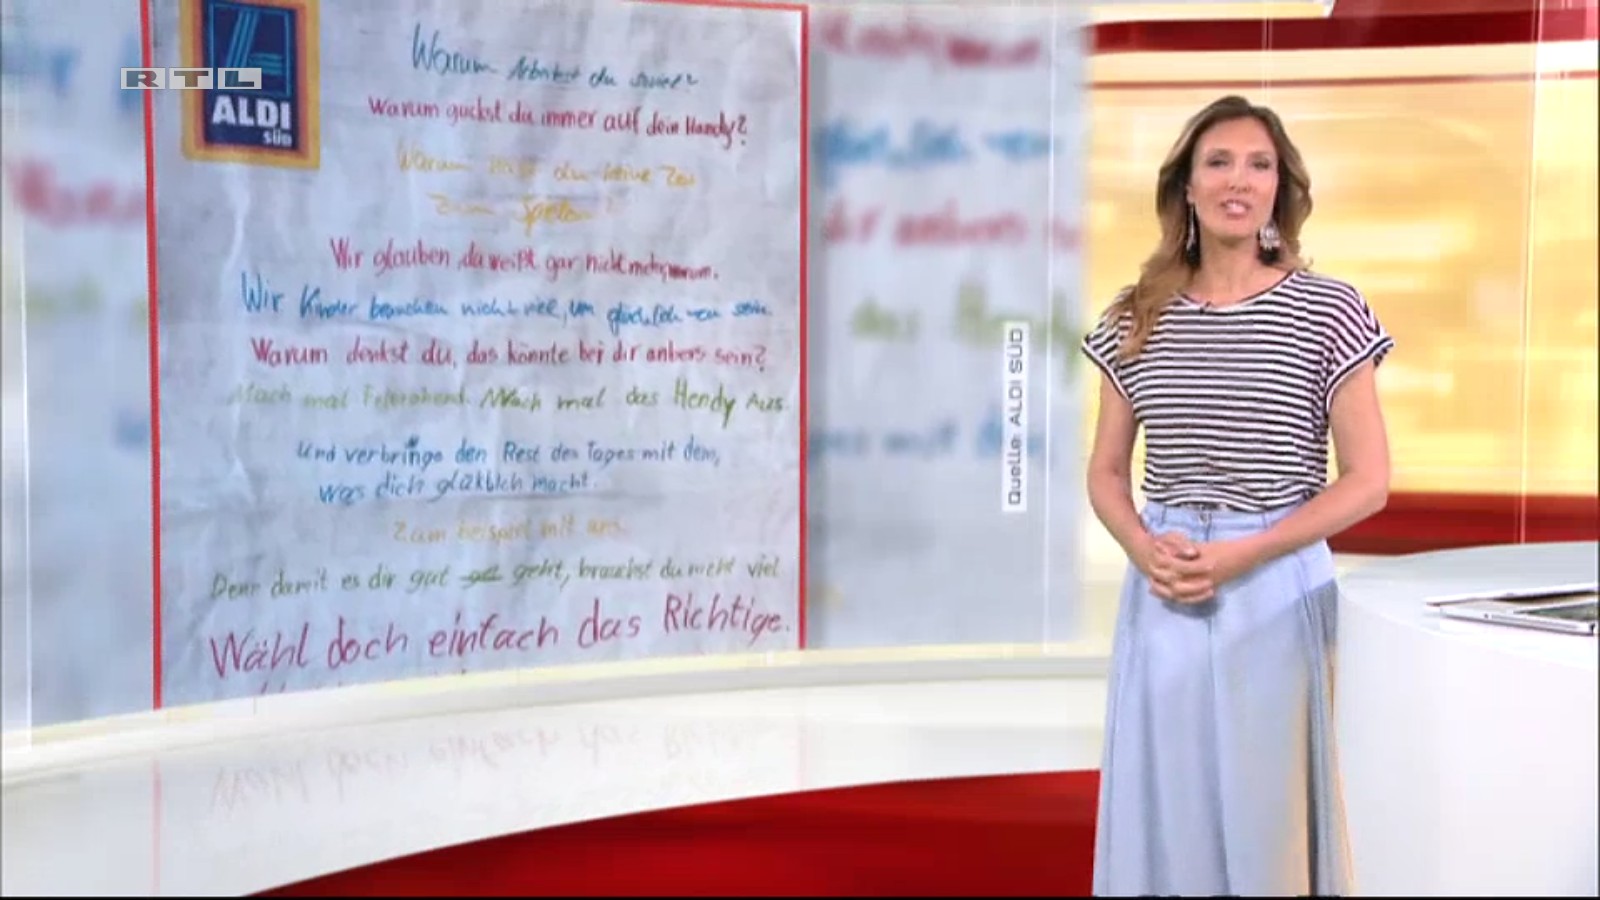 RTL
ALDI
süd
Warum Arbeitest du soviel?
Warum guckst du immer auf dein Handy?
Warum hast du keine Zeit
Zum Spielen?
Wir glauben, du weißt gar nicht mehr, warum.
Wir Kinder brauchen nicht viel, um glücklich zu sein.
Warum denkst du, das könnte bei dir anders sein?
Mach mal Feierabend. Mach mal das Hendy Aus.
Und verbringe den Rest des Tages mit dem,
was dich glücklich macht.
Zum beispiel mit uns.
Denn damit es dir gut geht, brauchst du nicht viel
Wähl doch einfach das Richtige.
Quelle: ALDI SÜD